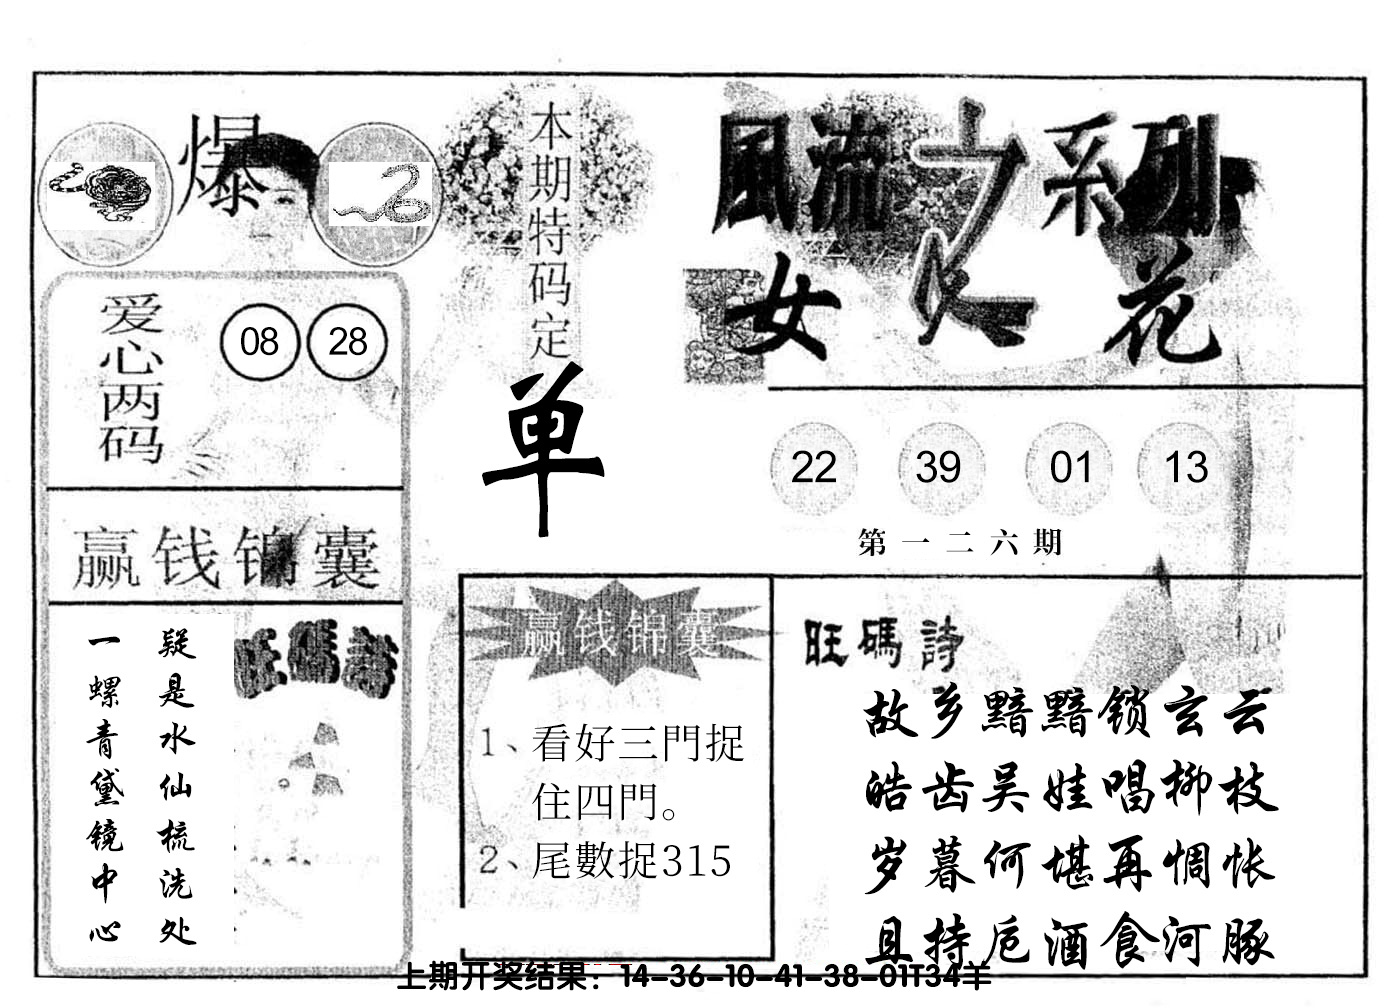 爆
本期特码定
单
風流之系列
女人花
爱心两码
08 28
22 39 01 13
第一二六期
赢钱锦囊
疑是水仙梳洗处
一螺青黛镜中心
旺碼詩
赢钱锦囊
1、看好三門捉
住四門。
2、尾數捉315
旺碼詩
故乡黯黯锁玄云
皓齿吴娃唱柳枝
岁暮何堪再惆怅
且持卮酒食河豚
上期开奖结果：14-36-10-41-38-01T34羊